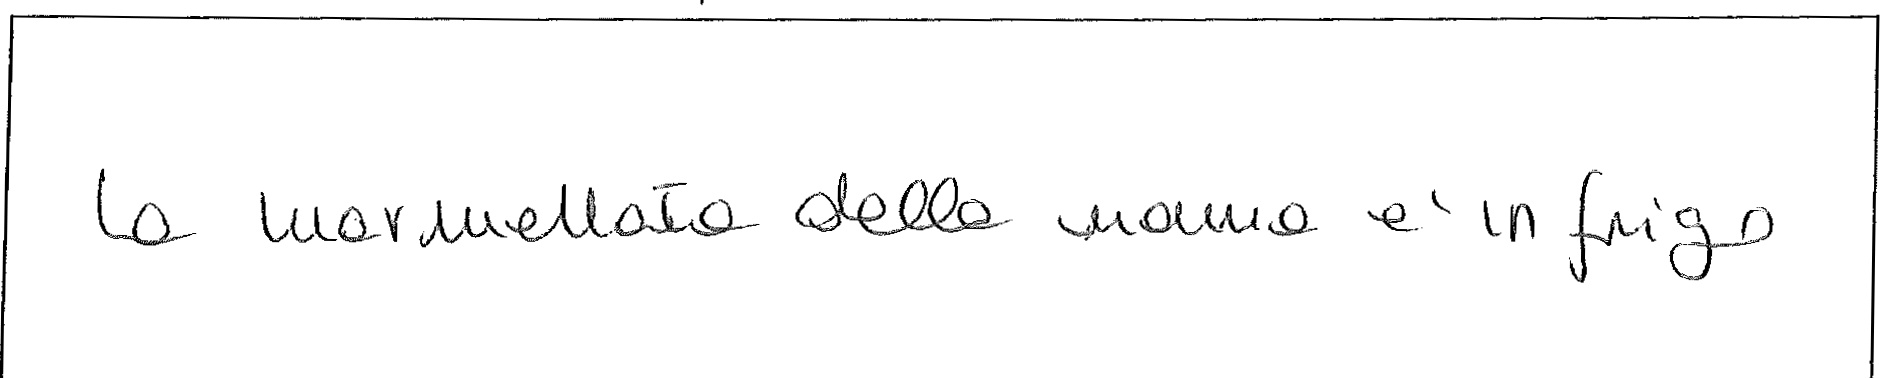 la marmellata della mama e' in frigo